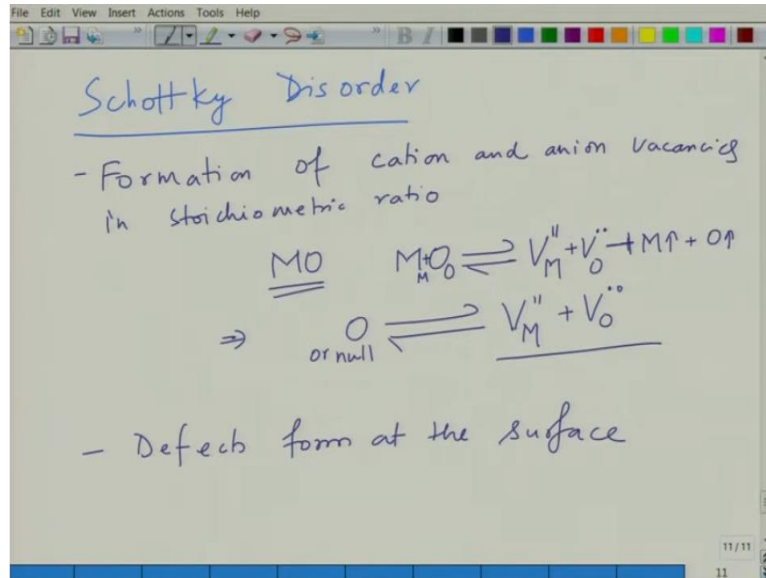 File Edit View Insert Actions Tools Help
Schottky Disorder
- Formation of cation and anion vacancies
in stoichiometric ratio
MO M_M + O_O ⇌ V_M'' + V_O^.. + M↑ + O↑
⇒ O ⇌ V_M'' + V_O^..
or null
- Defects form at the surface
11/11
11